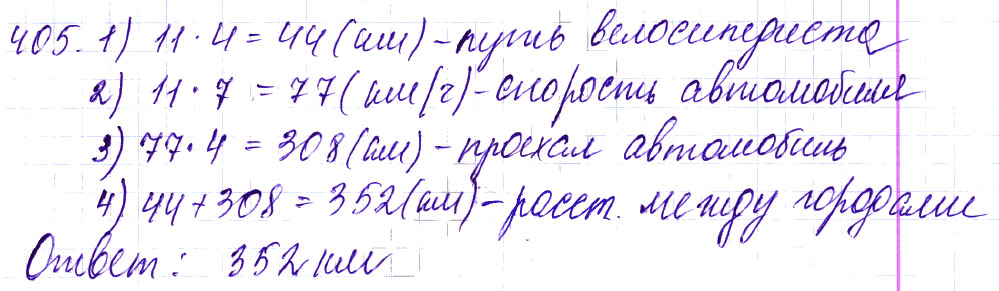 405. 1) 11 · 4 = 44 (км) – путь велосипедиста
2) 11 · 7 = 77 (км/ч) – скорость автомобиля
3) 77 · 4 = 308 (км) – проехал автомобиль
4) 44 + 308 = 352 (км) – расст. между городами
Ответ: 352 км